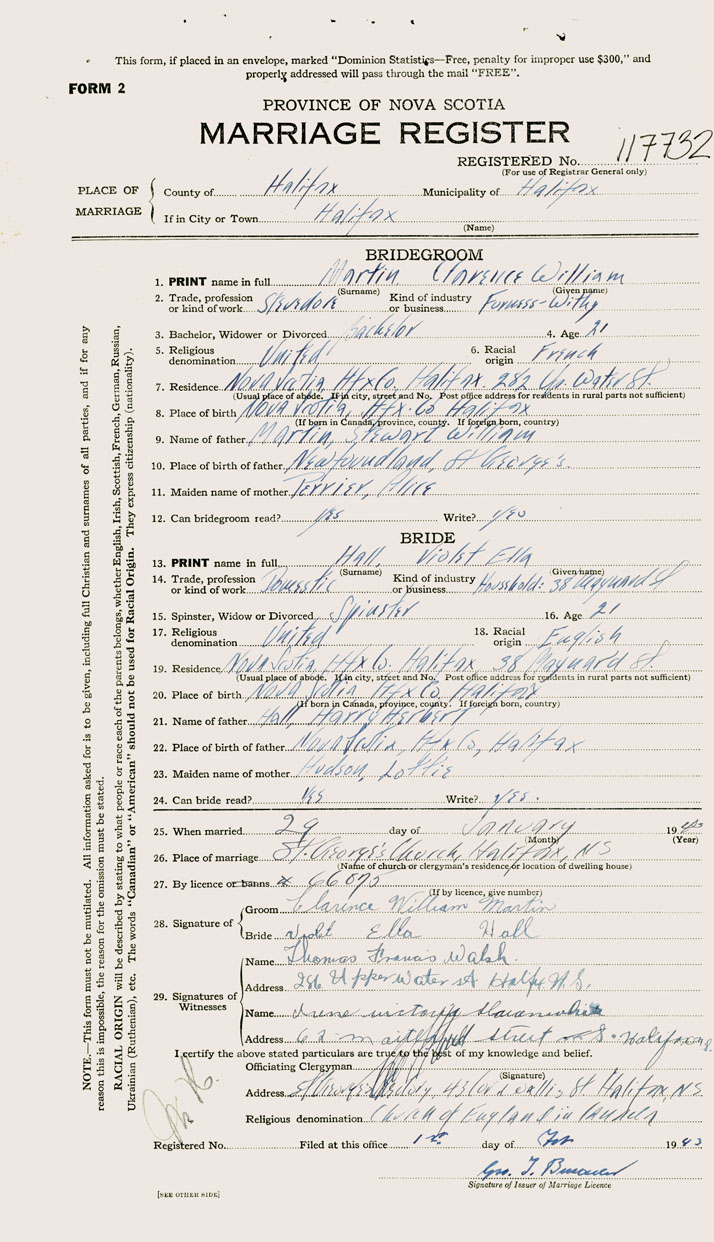 This form, if placed in an envelope, marked "Dominion Statistics—Free, penalty for improper use $300," and
properly addressed will pass through the mail "FREE".
FORM 2
PROVINCE OF NOVA SCOTIA
MARRIAGE REGISTER
REGISTERED No. 117732
(For use of Registrar General only)
PLACE OF MARRIAGE
County of Halifax Municipality of Halifax
If in City or Town Halifax
(Name)
BRIDEGROOM
1. PRINT name in full Martin Clarence William
(Surname) (Given name)
2. Trade, profession or kind of work Stevedore Kind of industry or business Furness-Withy
3. Bachelor, Widower or Divorced Bachelor 4. Age 21
5. Religious denomination United 6. Racial origin French
7. Residence Nova Scotia, Hfx Co. Halifax. 282 Up. Water St.
(Usual place of abode. If in city, street and No. Post office address for residents in rural parts not sufficient)
8. Place of birth Nova Scotia, Hfx. Co Halifax
(If born in Canada, province, county. If foreign born, country)
9. Name of father Martin, Stewart William
10. Place of birth of father Newfoundland, St George's.
11. Maiden name of mother Perrier, Alice
12. Can bridegroom read? yes Write? yes
BRIDE
13. PRINT name in full Hall, Violet Ella
(Surname) (Given name)
14. Trade, profession or kind of work Domestic Kind of industry or business Household: 38 Maynard St
15. Spinster, Widow or Divorced Spinster 16. Age 21
17. Religious denomination United 18. Racial origin English
19. Residence Nova Scotia, Hfx Co. Halifax, 38 Maynard St.
(Usual place of abode. If in city, street and No. Post office address for residents in rural parts not sufficient)
20. Place of birth Nova Scotia, Hfx Co. Halifax
(If born in Canada, province, county. If foreign born, country)
21. Name of father Hall, Harry Herbert
22. Place of birth of father Nova Scotia, Hfx Co, Halifax
23. Maiden name of mother Hudson, Lottie
24. Can bride read? yes Write? yes.
25. When married 29 day of January 1943
(Month) (Year)
26. Place of marriage St. George's Church, Halifax, NS
(Name of church or clergyman's residence, or location of dwelling house)
27. By licence or banns 66075
(If by licence, give number)
28. Signature of
Groom Clarence William Martin
Bride Violet Ella Hall
29. Signatures of Witnesses
Name Thomas Francis Walsh.
Address 286 Upper Water st Halfx N.S.
Name Irene Victoria
Address 62 street Halifax
I certify the above stated particulars are true to the best of my knowledge and belief.
Officiating Clergyman
(Signature)
Address St George's Rectory, St. Halifax, NS
Religious denomination Church of England in Canada
Registered No. Filed at this office 1st day of Feb 1943
Geo. T.
Signature of Issuer of Marriage Licence
[SEE OTHER SIDE]
NOTE.—This form must not be mutilated. All information asked for is to be given, including full Christian and surnames of all parties, and if for any
reason this is impossible, the reason for the omission must be stated.
RACIAL ORIGIN will be described by stating to what people or race each of the parents belongs, whether English, Irish, Scottish, French, German, Russian,
Ukrainian (Ruthenian), etc. The words "Canadian" or "American" should not be used for Racial Origin. They express citizenship (nationality).